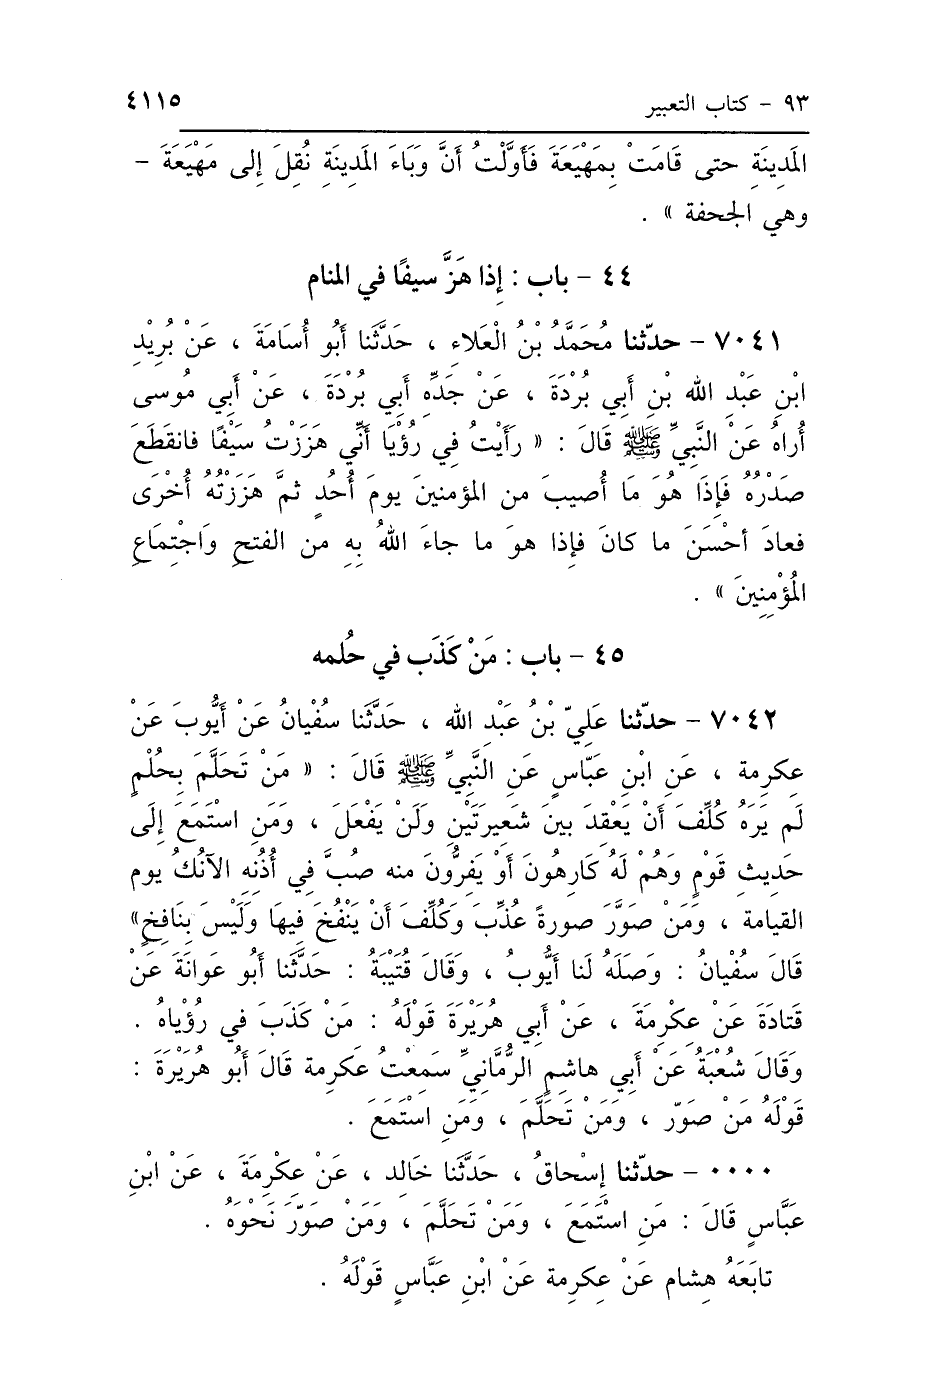 ٩٣ - كتاب التعبير ٤١١٥
المَدِينَةِ حتى قَامَتْ بِمَهْيَعَةَ فَأَوَّلْتُ أنَّ وَبَاءَ المَدِينَةِ نُقِلَ إِلى مَهْيَعَةَ -
وهي الجحفة » .
٤٤ - باب : إِذا هَزَّ سيفًا في المنام
٧٠٤١ - حدّثنا مُحَمَّدُ بْنُ الْعَلاءِ ، حَدَّثَنا أبُو أُسَامَةَ ، عَنْ بُرَيْدِ
ابْنِ عَبْدِ الله بْنِ أبي بُرْدَةَ ، عَنْ جَدِّهِ أبي بُرْدَةَ ، عَنْ أبي مُوسى
أُراهُ عَنْ النَّبيِّ ﷺ قَالَ : « رَأَيْتُ في رُؤْيَا أنِّي هَزَزْتُ سَيْفًا فانقَطَعَ
صَدْرُهُ فَإِذَا هُوَ مَا أُصيبَ من المؤمنينَ يومَ أُحُدٍ ثمَّ هَزَزتُهُ أُخْرَى
فعادَ أحْسَنَ ما كانَ فإذا هوَ ما جاءَ اللهُ بِهِ من الفتحِ وَاجْتِمَاعِ
المُؤْمِنِينَ » .
٤٥ - باب : مَنْ كَذَب في حلُمه
٧٠٤٢ - حدّثنا عَلِيّ بْنُ عَبْدِ الله ، حَدَّثَنا سُفْيانُ عَنْ أيُّوبَ عَنْ
عِكرمة ، عَنِ ابْنِ عَبَّاسٍ عَنِ النَّبيِّ ﷺ قَالَ : « مَنْ تَحَلَّمَ بِحُلْمٍ
لَم يَرَهُ كُلِّفَ أَنْ يَعْقِدَ بينَ شَعيرَتَيْنِ ولَنْ يَفْعَلَ ، وَمَنِ اسْتَمَعَ إِلَى
حَديثِ قَوْمٍ وَهُمْ لَهُ كَارِهُونَ أوْ يَفِرُّونَ منه صُبَّ فِي أُذُنِهِ الآنُكُ يوم
القيامة ، وَمَنْ صَوَّرَ صورةً عُذِّبَ وَكُلِّفَ أنْ يَنْفُخَ فِيهَا وَلَيْسَ بِنَافِخٍ»
قَالَ سُفْيانُ : وَصَلَهُ لَنا أيُّوبُ ، وَقَالَ قُتَيْبَةُ : حَدَّثَنا أبُو عَوانَةَ عَنْ
قَتادَةَ عَنْ عِكْرِمَةَ ، عَنْ أبي هُرَيْرَةَ قَوْلَهُ : مَنْ كَذَبَ في رُؤْياهُ .
وَقَالَ شُعْبَةُ عَنْ أبي هاشمٍ الرُّمَّانيِّ سَمعْتُ عَكرمة قَالَ أَبُو هُرَيْرَةَ :
قَوْلَهُ مَنْ صَوّر ، وَمَنْ تَحَلَّمَ ، وَمَنِ اسْتَمَعَ .
٠٠٠٠ - حدّثنا إِسْحاقُ ، حَدَّثَنا خَالد ، عَنْ عِكْرِمَةَ ، عَنْ ابْنِ
عَبَّاسٍ قَالَ : مَنِ اسْتَمَعَ ، وَمَنْ تَحلَّمَ ، وَمَنْ صَوّرَ نَحْوَهُ .
تابَعَهُ هِشام عَنْ عِكرمة عَنْ ابْنِ عَبَّاسٍ قَوْلَهُ .